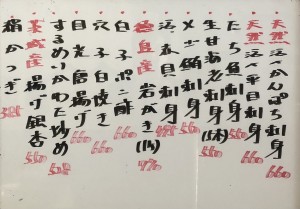 天然活〆かんぱち刺身 660
天然活〆平目刺身 660
たち魚刺身 550
生甘海老刺身(休)
〆小鯵刺身 550
活〆真貝刺身
徳島産岩がき(1ヶ) 770
白子ポン酢 660
穴子白焼き 660
目光唐揚げ 660
するめいかわた炒め 550
茨城産揚げ銀杏 550
絹かつぎ